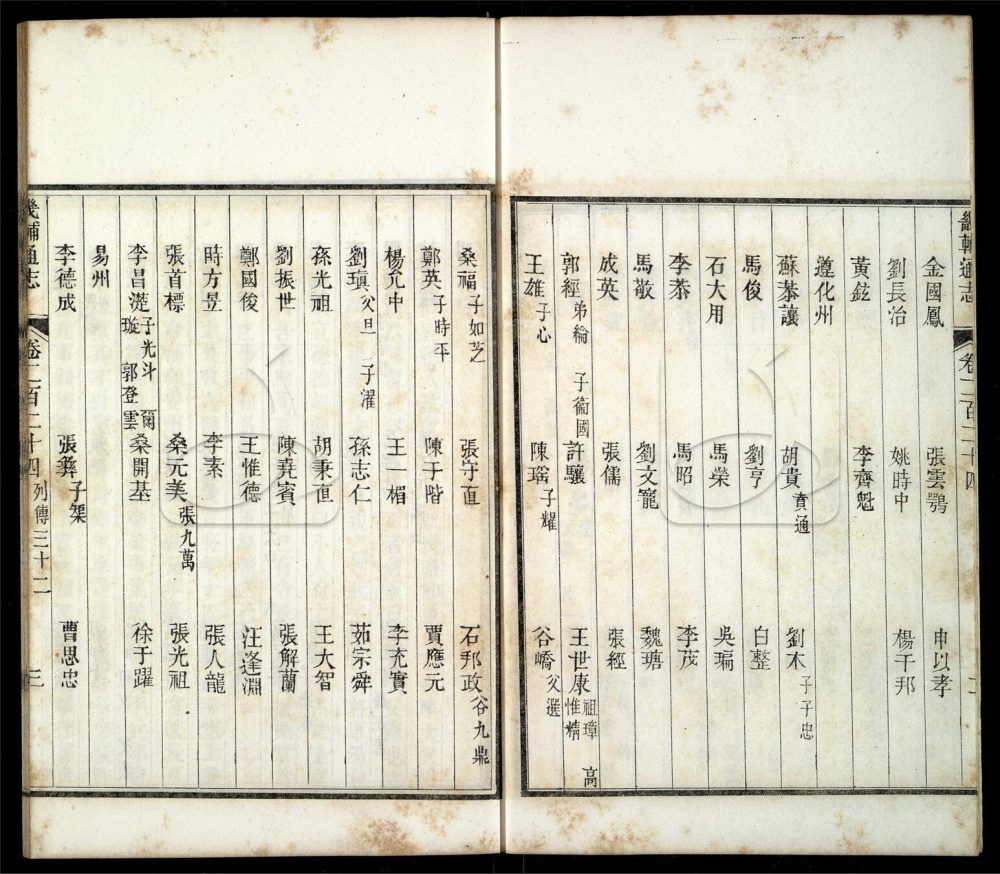 畿輔通志 卷二百二十四 二
金國鳳 張雲鶚 申以孝
劉長治 姚時中 楊于邦
黃鉉 李齊魁
遵化州
蘇恭讓 胡貴 賁通 劉木 子子忠
馬俊 劉亨 白整
石大用 馬榮 吳瑞
李恭 馬昭 李茂
馬敬 劉文寵
成英 張儒 張經
郭經 弟綸 子衛國 許驤 王世康 祖璋 惟精 高
王雄 子心 陳瑤 子耀 谷嶠 父選
桑福 子如芝 張守直 石邦政 谷九鼎
鄭英 子時平 陳于階 賈應元
楊允中 王一楣 李充實
劉瑱 父旦 子濯 孫志仁 茹宗舜
孫光祖 胡秉直 王大智
劉振世 陳堯賓 張解蘭
鄭國俊 王惟德 汪逢淵
時方昱 李素 張人龍
張首標 桑元美 張九萬 張光祖
李昌 子光斗 璇 郭登雲 爾 桑開基 徐于躍
易州
李德成 張彝 子桀 曹思忠
畿輔通志 卷二百二十四 列傳三十二 三